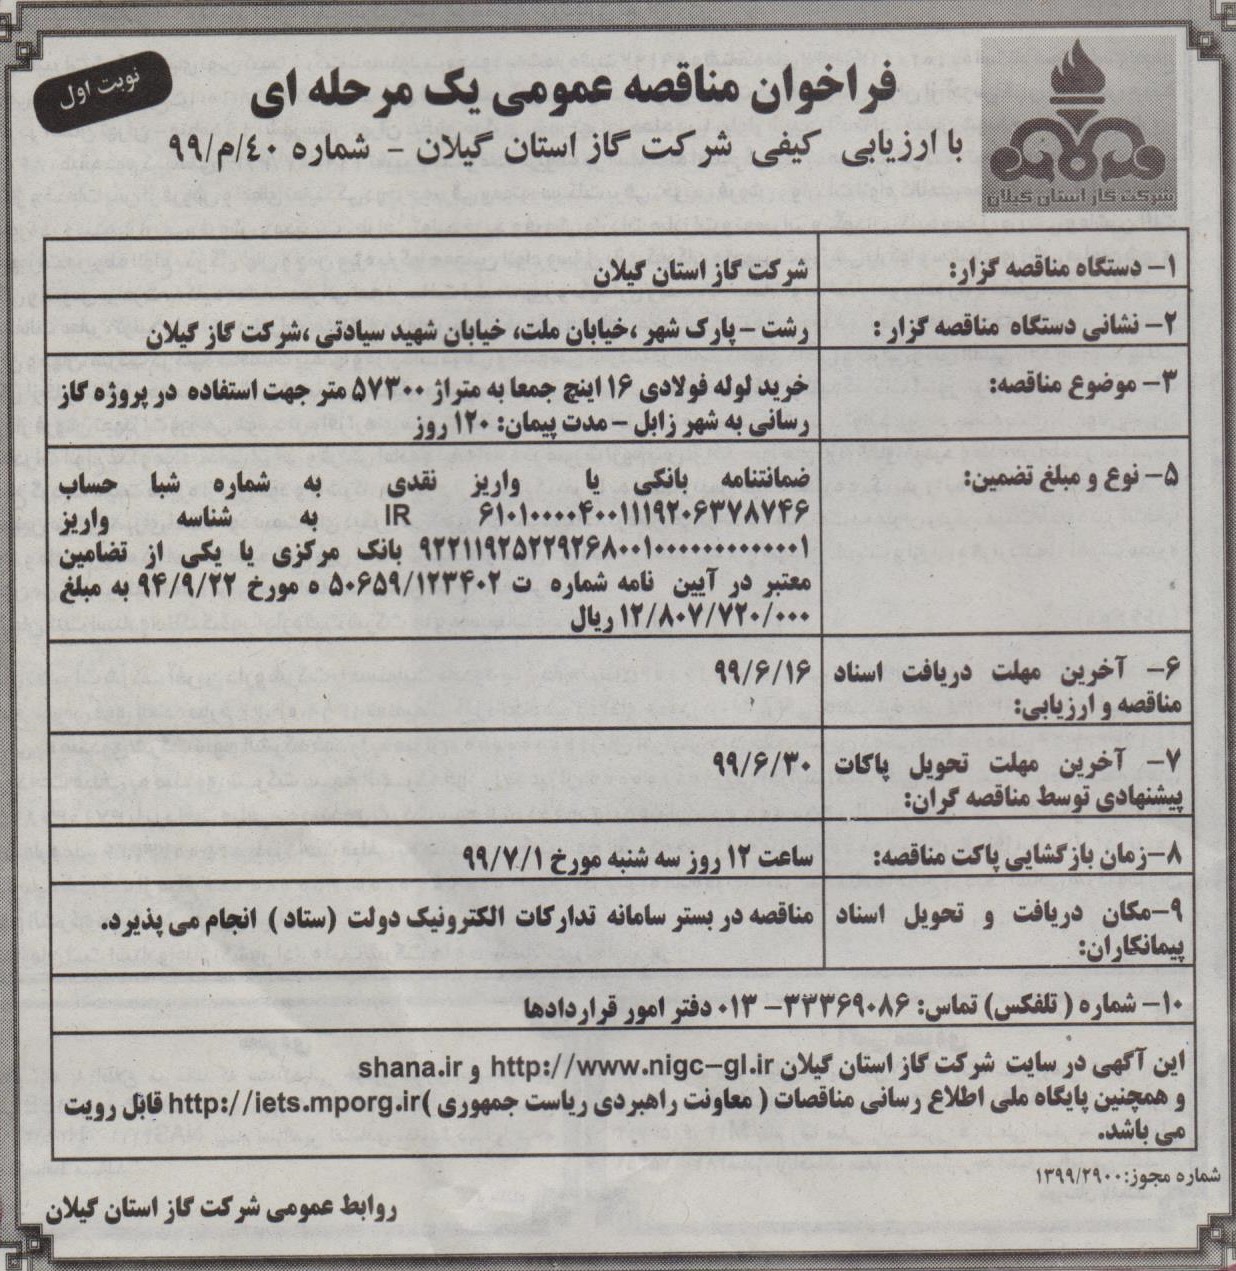 نوبت اول
فراخوان مناقصه عمومی یک مرحله ای
با ارزیابی کیفی شرکت گاز استان گیلان - شماره ۴۰/م/۹۹
شرکت گاز استان گیلان
۱- دستگاه مناقصه گزار: شرکت گاز استان گیلان
۲- نشانی دستگاه مناقصه گزار: رشت - پارک شهر ،خیابان ملت، خیابان شهید سیادتی ،شرکت گاز گیلان
۳- موضوع مناقصه: خرید لوله فولادی ۱۶ اینچ جمعا به متراژ ۵۷۳۰۰ متر جهت استفاده در پروژه گاز
رسانی به شهر زابل - مدت پیمان: ۱۲۰ روز
۵- نوع و مبلغ تضمین: ضمانتنامه بانکی یا واریز نقدی به شماره شبا حساب
IR ۶۱۰۱۰۰۰۰۴۰۰۱۱۱۹۲۰۶۳۷۸۷۴۶ به شناسه واریز
۹۲۲۱۱۹۲۵۲۲۹۲۶۸۰۰۱۰۰۰۰۰۰۰۰۰۰۰۰۰۱ بانک مرکزی یا یکی از تضامین
معتبر در آیین نامه شماره ت ۵۰۶۵۹/۱۲۳۴۰۲ ه مورخ ۹۴/۹/۲۲ به مبلغ
۱۲/۸۰۷/۷۲۰/۰۰۰ ریال
۶- آخرین مهلت دریافت اسناد
مناقصه و ارزیابی:
۹۹/۶/۱۶
۷- آخرین مهلت تحویل پاکات
پیشنهادی توسط مناقصه گران:
۹۹/۶/۳۰
۸-زمان بازگشایی پاکت مناقصه: ساعت ۱۲ روز سه شنبه مورخ ۹۹/۷/۱
۹-مکان دریافت و تحویل اسناد
پیمانکاران:
مناقصه در بستر سامانه تدارکات الکترونیک دولت (ستاد ) انجام می پذیرد.
۱۰- شماره ( تلفکس) تماس: ۳۳۳۶۹۰۸۶- ۰۱۳ دفتر امور قراردادها
این آگهی در سایت شرکت گاز استان گیلان http://www.nigc-gl.ir و shana.ir
و همچنین پایگاه ملی اطلاع رسانی مناقصات ( معاونت راهبردی ریاست جمهوری )http://iets.mporg.ir قابل رویت
می باشد.
شماره مجوز:۱۳۹۹/۲۹۰۰
روابط عمومی شرکت گاز استان گیلان